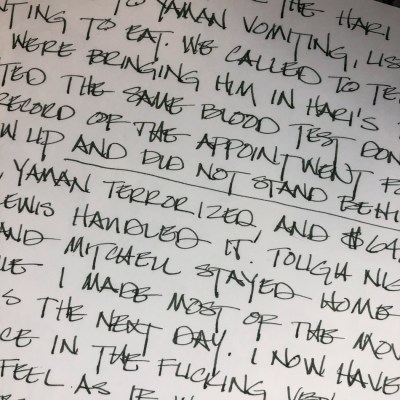 THE HARI
TO YAMAN VOMITING, LIS
NTING TO EAT. WE CALLED TO TE
WERE BRINGING HIM IN HARI'S
TED THE SAME BLOOD TEST DON
RECORD OF THE APPOINTMENT FO
W UP AND DID NOT STAND BEHI
, YAMAN TERRORIZED, AND $64
LEWIS HANDLED IT. TOUGH NIG
AND MITCHELL STAYED HOME
LE I MADE MOST OF THE MOV
S THE NEXT DAY. I NOW HAVE
CE IN THE FUCKING VET
FEEL AS IF W